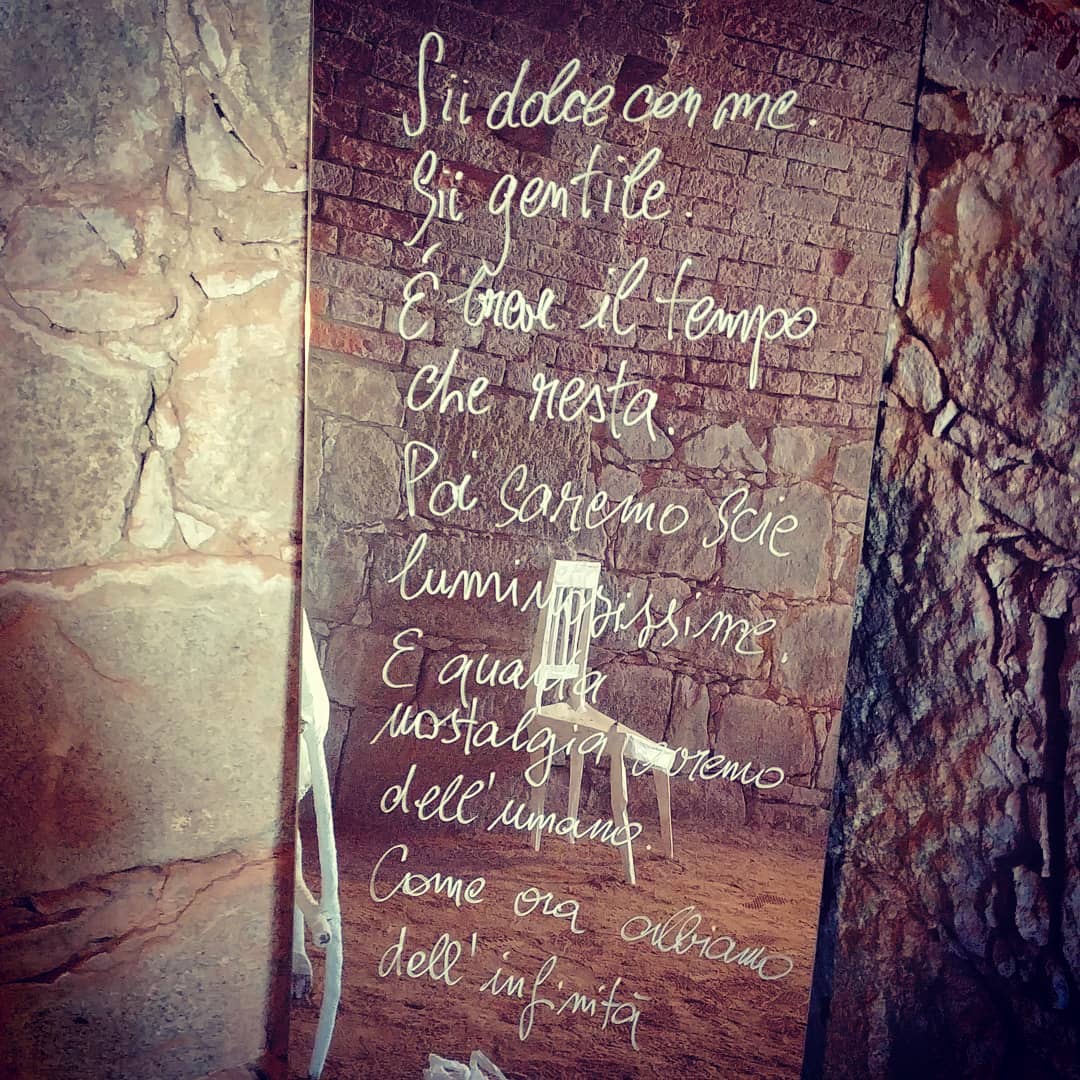 Sii dolce con me.
Sii gentile.
É breve il tempo
che resta.
Poi saremo scie
luminosissime.
E quanta
nostalgia avremo
dell'umano.
Come ora abbiamo
dell'infinità